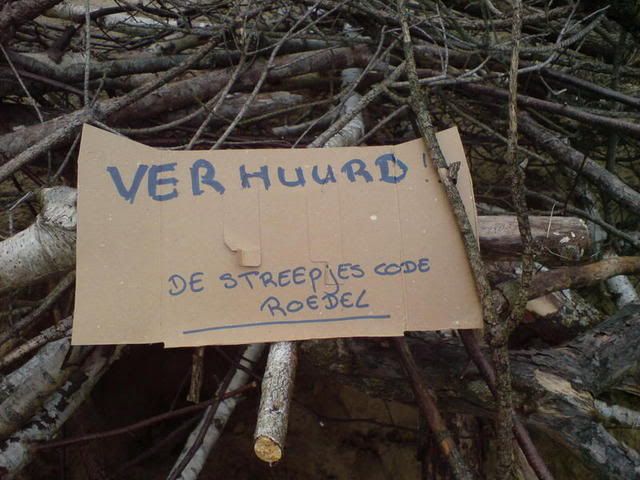 VERHUURD!
DE STREEPJES CODE
ROEDEL